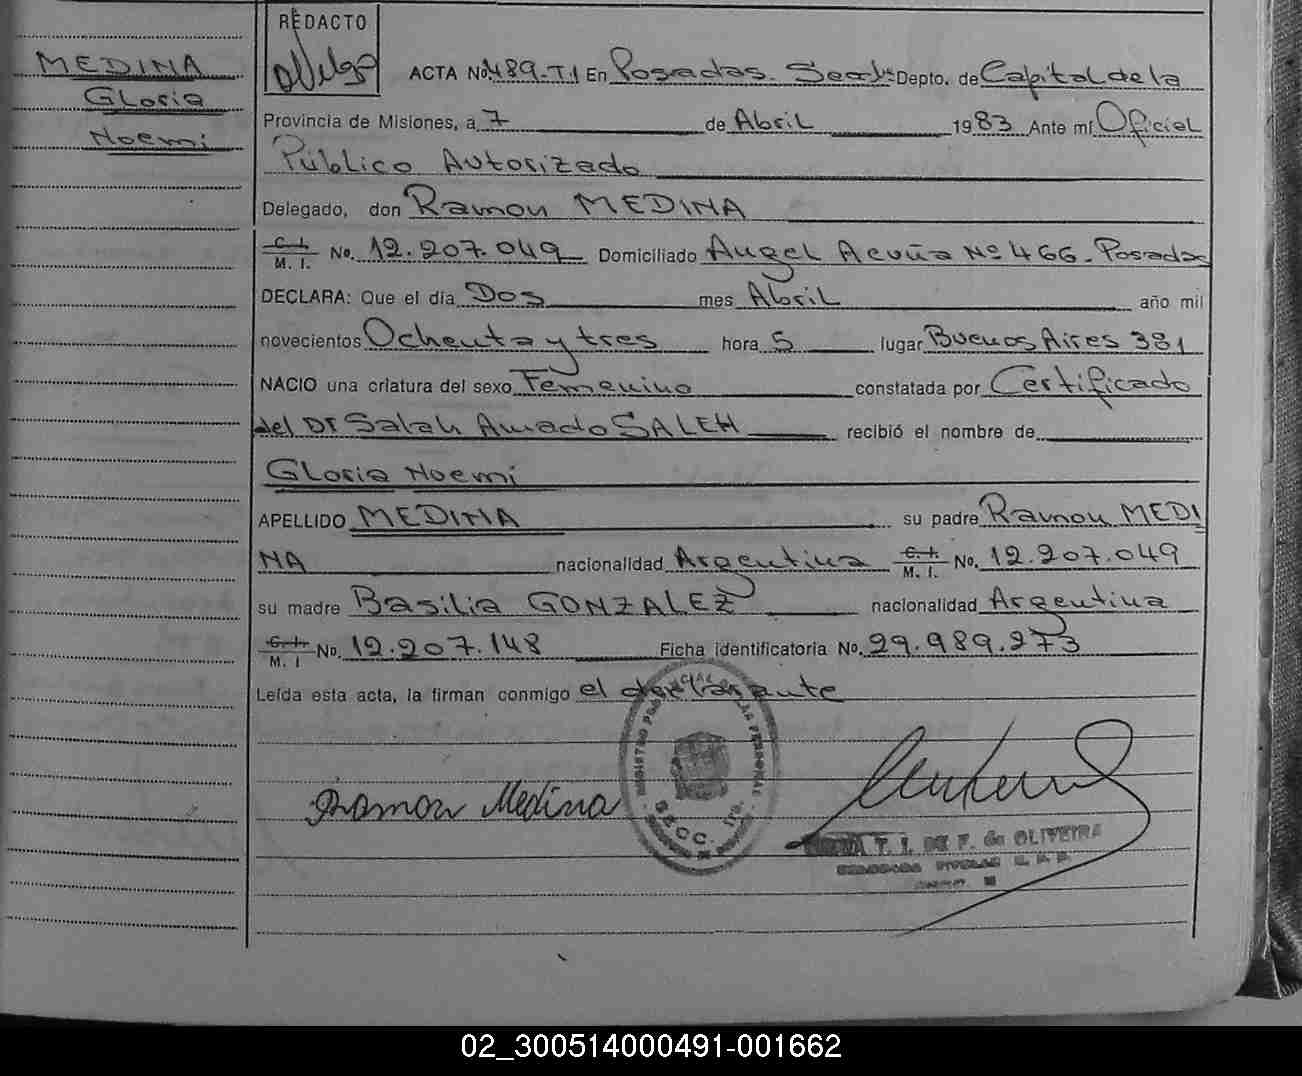 MEDINA
Gloria
Noemi
REDACTO
ACTA No. 489-T.1 En Posadas. Secc. 1ª Depto. de Capital de la
Provincia de Misiones, a 7 de Abril 1983 Ante mí Oficial
Público Autorizado
Delegado, don Ramon MEDINA
C. I. M. I. No. 12.207.049 Domiciliado Angel Acuña Nº 466. Posadas
DECLARA: Que el día Dos mes Abril año mil
novecientos Ochenta y tres hora 5 lugar Buenos Aires 381
NACIO una criatura del sexo Femenino constatada por Certificado
del Dr Salah Amado SALEH recibió el nombre de
Gloria Noemi
APELLIDO MEDINA su padre Ramon MEDI
NA nacionalidad Argentina C. I. M. I. No. 12.207.049
su madre Basilia GONZALEZ nacionalidad Argentina
C. I. M. I No. 12.207.148 Ficha identificatoria No. 29.989.273
Leída esta acta, la firman conmigo el declarante
Ramon Medina
REGISTRO PROVINCIAL DE LAS PERSONAS
SECC. 1ra.
T. I. DE F. de OLIVEIRA
TITULAR
02_300514000491-001662